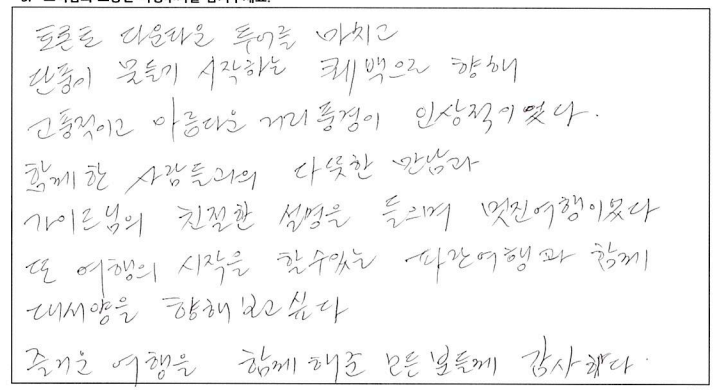 토론토 다운타운 투어를 마치고
단풍이 물들기 시작하는 퀘백으로 향해
고풍적이고 아름다운 거리풍경이 인상적이었다.
함께한 사람들과의 다뜻한 만남과
가이드님의 친절한 설명을 들으며 멋진여행이었다
또 여행의 시작을 할수있는 파란여행과 함께
대서양을 향해보고싶다
즐거운 여행을 함께해준 모든분들께 감사하다.